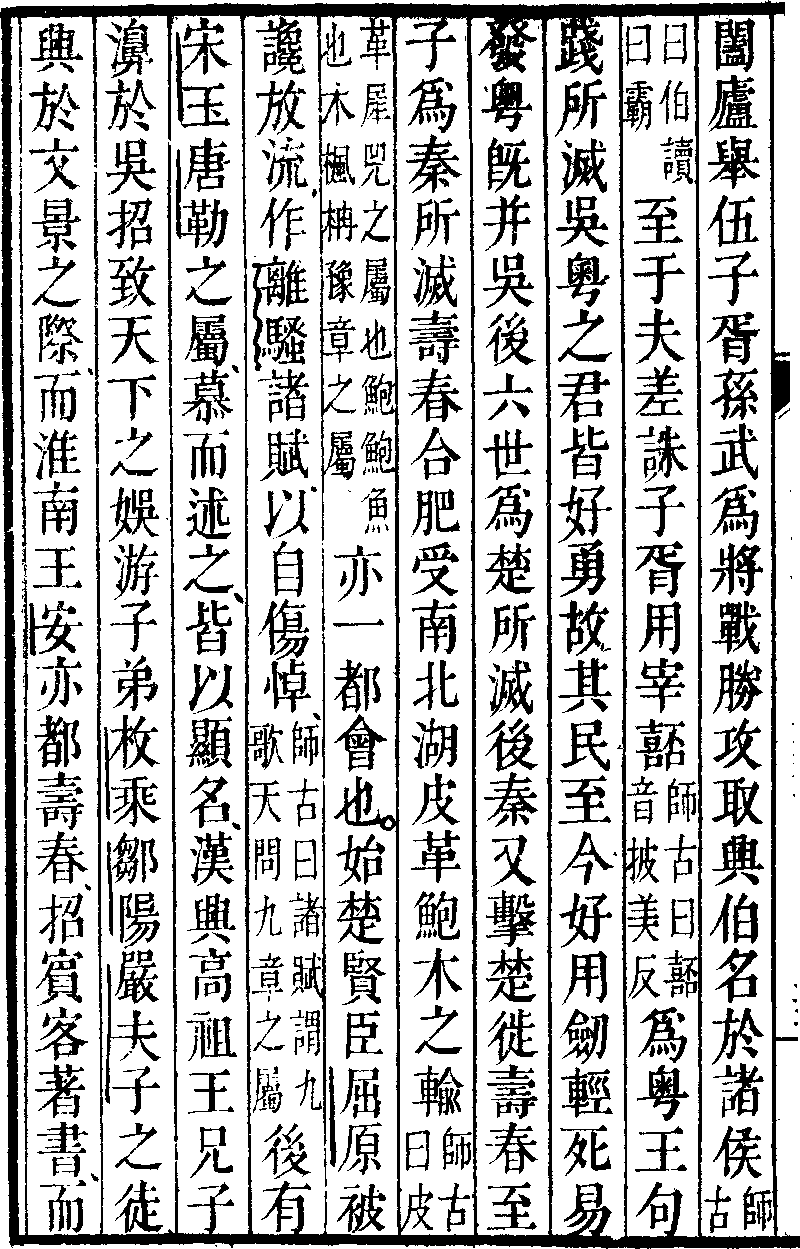 闔廬舉伍子胥孫武爲將戰勝攻取興伯名於諸侯師古
曰伯讀曰霸至于夫差誅子胥用宰嚭師古曰嚭音披美反爲粤王句
踐所滅吳粤之君皆好勇故其民至今好用劒輕死易
發粤旣并吳後六世爲楚所滅後秦又擊楚徙壽春至
子爲秦所滅壽春合肥受南北湖皮革鮑木之輸師古曰皮
革犀兕之屬也鮑鮑魚也木楓柟豫章之屬亦一都會也。始楚賢臣屈原被
讒放流、作離騷諸賦、以自傷悼、師古曰諸賦謂九歌天問九章之屬後有
宋玉唐勒之屬、慕而述之、皆以顯名、漢興高祖王兄子
濞於吳招致天下之娛游子弟枚乘鄒陽嚴夫子之徒、
興於文景之際、而淮南王安亦都壽春、招賓客著書、而